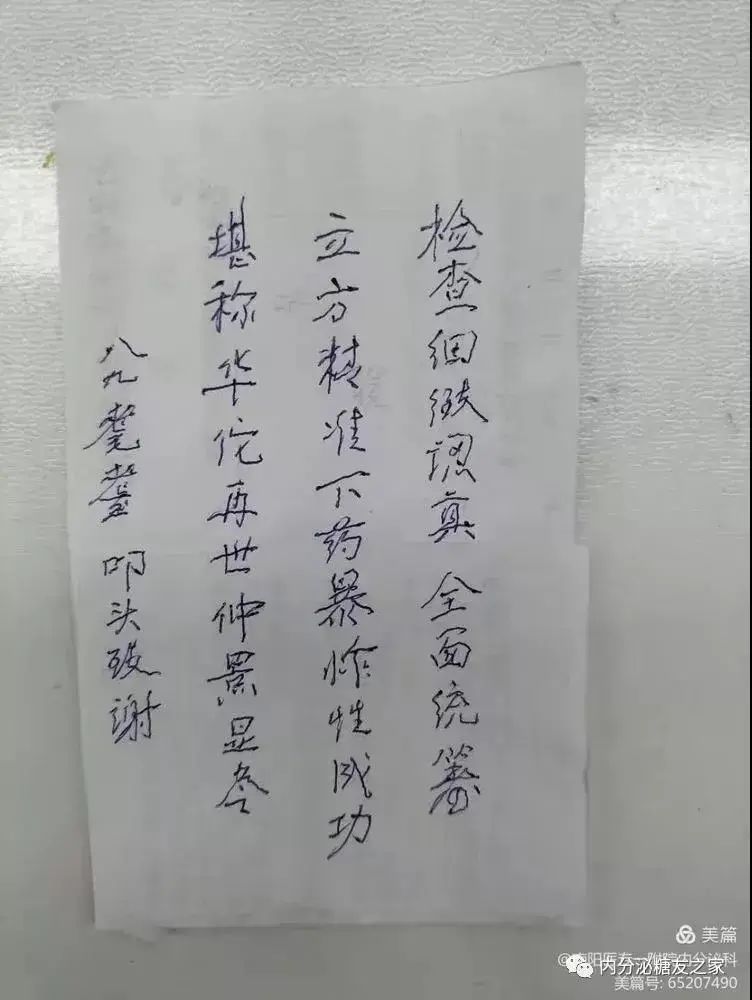 检查细致認真 全面统筹
立方精准下药暴炸性成功
堪称华佗再世仲景显
八九耄耋 叩头致谢
美篇
内分泌糖友之家
美篇号: 65207490